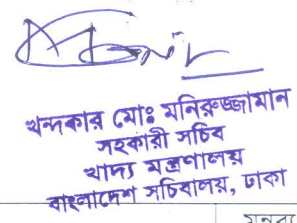 খন্দকার মোঃ মনিরুজ্জামান
সহকারী সচিব
খাদ্য মন্ত্রণালয়
বাংলাদেশ সচিবালয়, ঢাকা